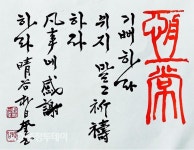 恒常
기뻐하라
쉬지 말고 祈禱
하라
凡事에 感謝
하라 晴谷